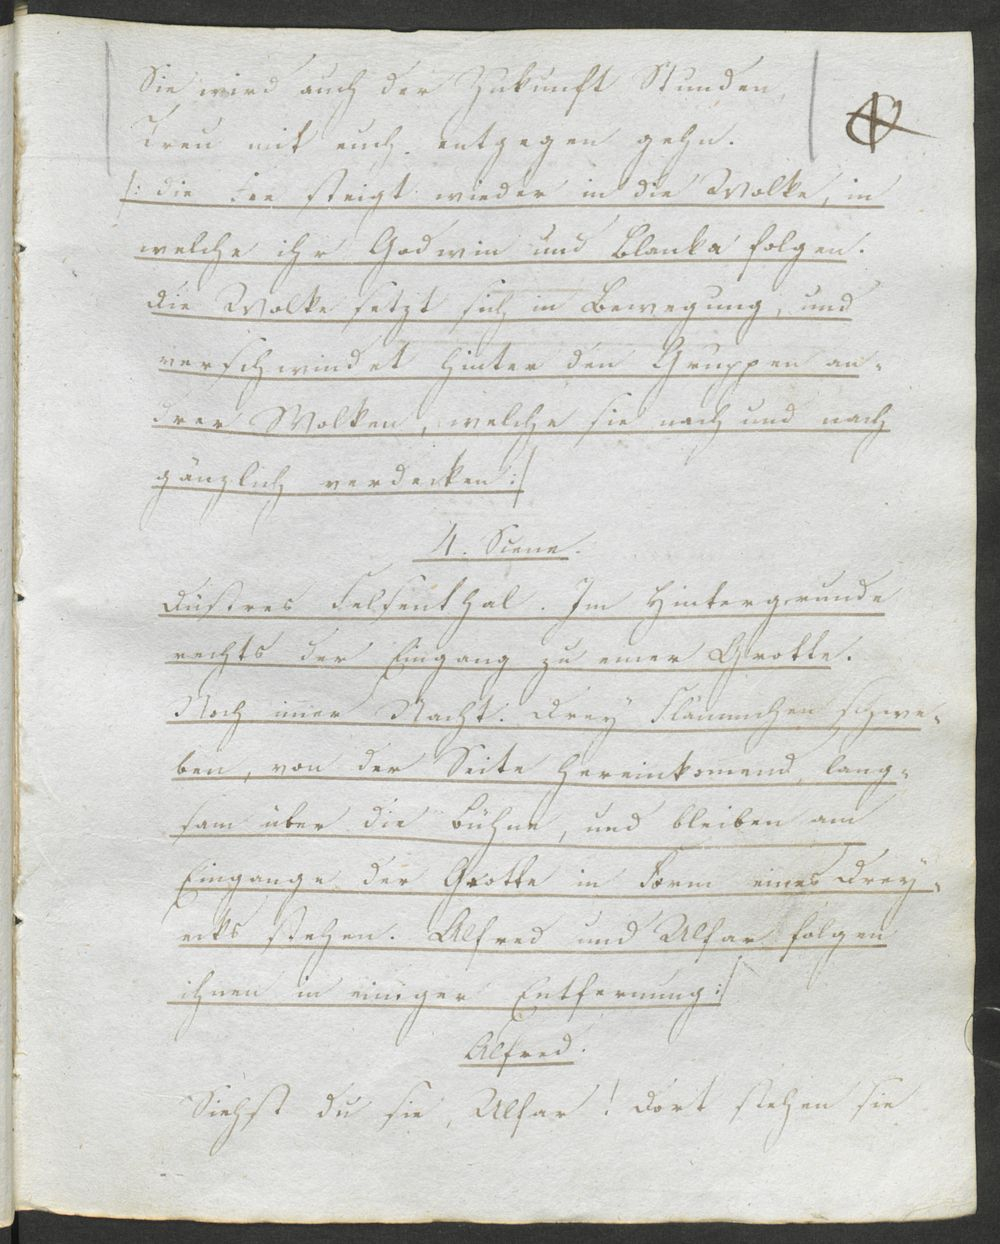 Sie wird auch der Zukunft Stunden,
Treu mit euch entgegen gehn.
/: die Fee steigt wieder in die Wolke, in
welche ihr Godwin und Blanka folgen.
die Wolke setzt sich in Bewegung, und
verschwindet hinter den Gruppen an-
drer Wolken, welche sie nach und nach
gänzlich verdecken :/
4. Scene.
Düstres Felsenthal. Im Hintergrunde
rechts der Eingang zu einer Grotte.
Noch im̅er Nacht. Drey Flämmchen schwe-
ben, von der Seite hereinkom̅end, lang-
sam über die Bühne, und bleiben am
Eingange der Grotte in Form eines Drey-
ecks stehen. Alfred und Ulfar folgen
ihnen in einiger Entfernung :/
Alfred.
Siehst du sie, Ulfar! dort stehen sie